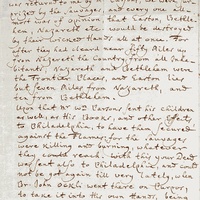 was returned to me by
prized by the Savages, and every one al-
most was of Opinion, that Easton, Bethle-
hem, Nazareth etc. would be destroyed
by their Wickedness all at once. For
after they had cleared near fifty Miles up
from Nazareth the Country, from all Inha-
bitants, Nazareth and Bethlehem were
the Frontier Places, and Easton lies
but seven Miles from Nazareth, and
ten from Bethlehem.
Upon that Mr Wm Parsons sent his children
as well, as his Books, and other Effects
to Philadelphia, to have them secured
against the Flames, for the Savages
were Killing and burning, whatever
they could reach with they your Deed
was sent also to Philadelphia, and could
not be got again till very lately, when
Br. John Okely went there on Purpose,
to take it into his own Hands, being